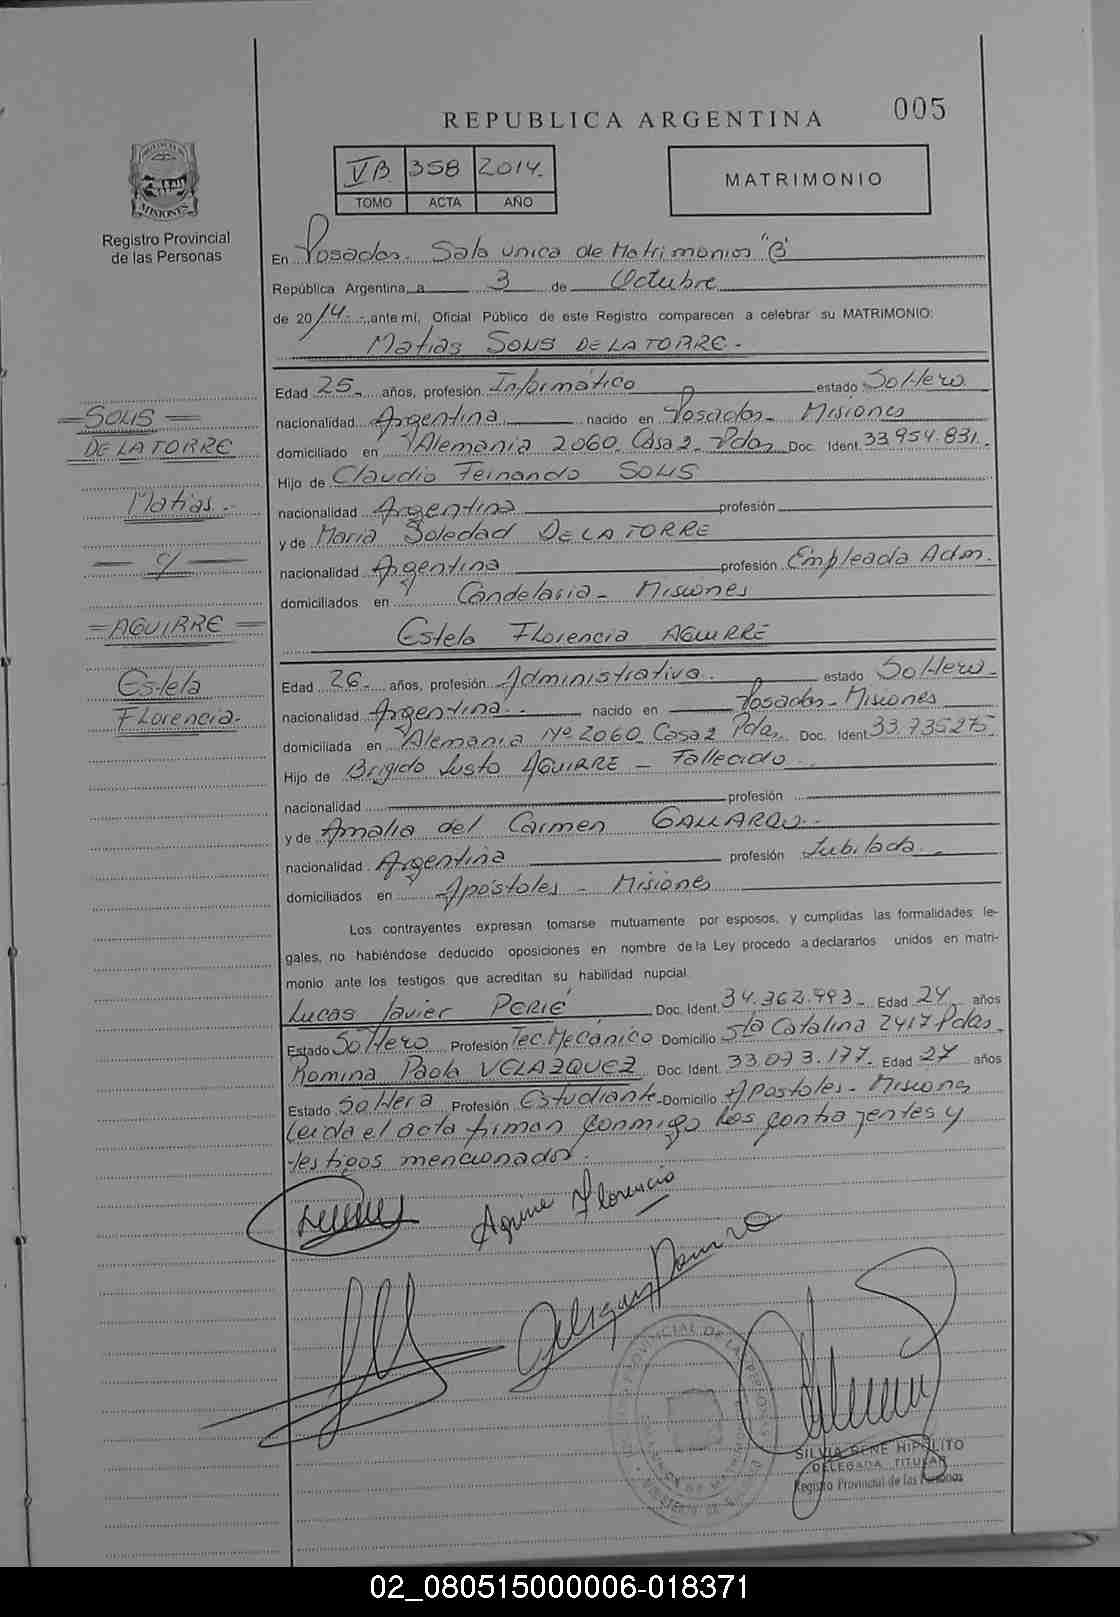 005
REPUBLICA ARGENTINA
VB 358 2014.
TOMO ACTA AÑO
MATRIMONIO
PROVINCIA DE
MISIONES
Registro Provincial
de las Personas
En Posadas. Sala unica de Matrimonios "B"
República Argentina, a 3 de Octubre
de 2014. ante mí, Oficial Público de este Registro comparecen a celebrar su MATRIMONIO:
Matias SOLIS DE LA TORRE.
Edad 25 años, profesión Informático estado Soltero
nacionalidad Argentina nacido en Posadas - Misiones
domiciliado en Alemania 2060 Casa 2 Pdas Doc. Ident. 33.954.831.
Hijo de Claudio Fernando SOLIS
nacionalidad Argentina profesión
y de Maria Soledad DE LA TORRE
nacionalidad Argentina profesión Empleada Adm.
domiciliados en Candelaria - Misiones
Estela Florencia AGUIRRE
Edad 26 años, profesión Administrativa. estado Soltero.
nacionalidad Argentina. nacido en Posadas - Misiones
domiciliada en Alemania Nº 2060 Casa 2 Pdas, Doc. Ident. 33.735.275
Hijo de Brigido Justo AGUIRRE - Fallecido
nacionalidad profesión
y de Amalia del Carmen GALLARDO.
nacionalidad Argentina profesión Jubilada.
domiciliados en Apóstoles - Misiones
Los contrayentes expresan tomarse mutuamente por esposos, y cumplidas las formalidades le-
gales, no habiéndose deducido oposiciones en nombre de la Ley procedo a declararlos unidos en matri-
monio ante los testigos que acreditan su habilidad nupcial.
Lucas Javier PERIE Doc. Ident. 34.362.993 Edad 24 años
Estado Soltero Profesión Tec. Mecánico Domicilio Sta Catalina 2417 Pdas.
Romina Paola VELAZQUEZ Doc. Ident. 33.073.177 Edad 27 años
Estado Soltera Profesión Estudiante Domicilio Apostoles - Misiones
Leida el acta firman conmigo los contrayentes y
testigos mencionados.
SOLIS
DE LA TORRE
Matias.-
c/
AGUIRRE
Estela
Florencia.
Aguirre Florencia
SILVIA RENE HIPOLITO
DELEGADA TITULAR
Registro Provincial de las Personas
02_080515000006-018371